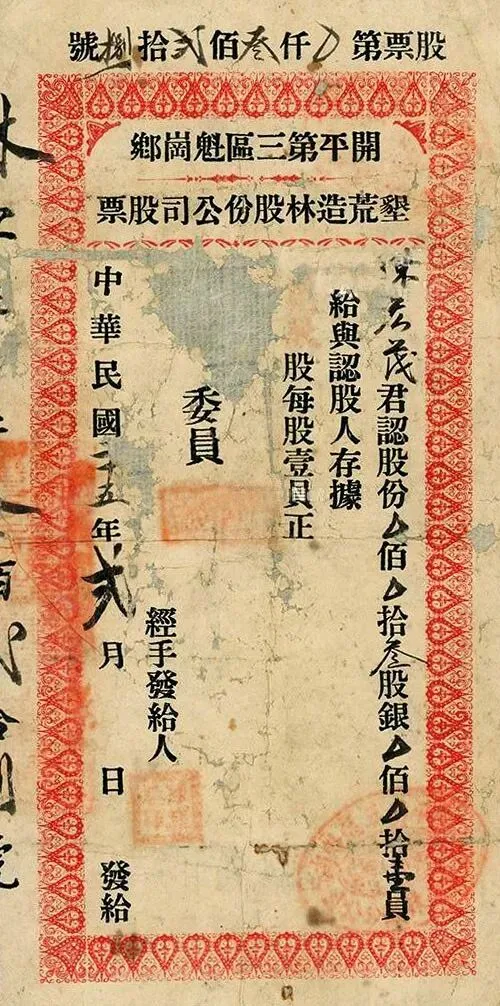 股票第0仟叁佰弍拾捌號
開平第三區魁崗鄉
墾荒造林股份公司股票
茂君認股份0佰0拾叁股銀0佰0拾員
給與認股人存據
股每股壹員正
委員
經手發給人
中華民國二五年弍月 日 發給